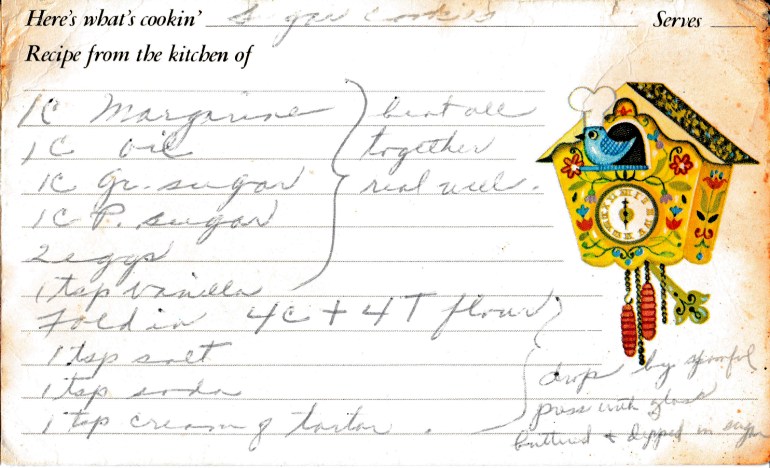 Here's what's cookin' Sugar Cookies Serves
Recipe from the kitchen of
1C Margarine beat all
1C oil together
1C Gr. sugar real well.
1C P. sugar
2 eggs
1 tsp vanilla
Fold in 4C + 4T flour
1 tsp salt
1 tsp soda
1 tsp cream of tartar.
drop by spoonful
press with glass
buttered & dipped in sugar